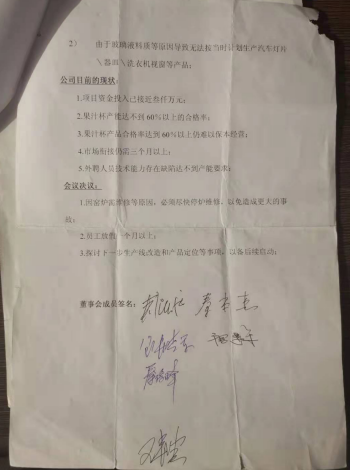 2） 由于玻璃液料质等原因导致无法按当时计划生产汽车灯片
\器皿\洗衣机视窗等产品;
公司目前的现状:
1.项目资金投入已接近叁仟万元;
2.果汁杯产能达不到60%以上的合格率;
3.果汁杯产品合格率达到60%以上仍难以保本经营;
4.市场衔接仍需三个月以上;
5.外聘人员技术能力存在缺陷达不到产能要求;
会议决议:
1.因窑炉需维修等原因，必须尽快停炉维修，以免造成更大的事
故;
2.员工放假一个月以上;
3.探讨下一步生产线改造和产品定位等事项，以备后续启动;
董事会成员签名: